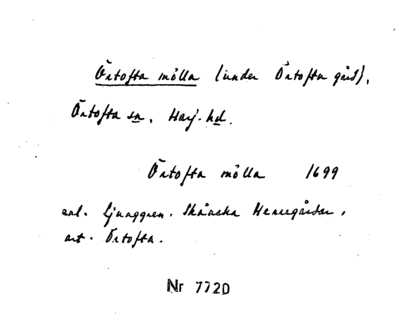 Örtofta mölla (under Örtofta gård),
Örtofta sn, Harj. hd.
Örtofta mölla 1699
enl. Ljunggren. Skånska Herregårdar,
art. Örtofta.
Nr 7720